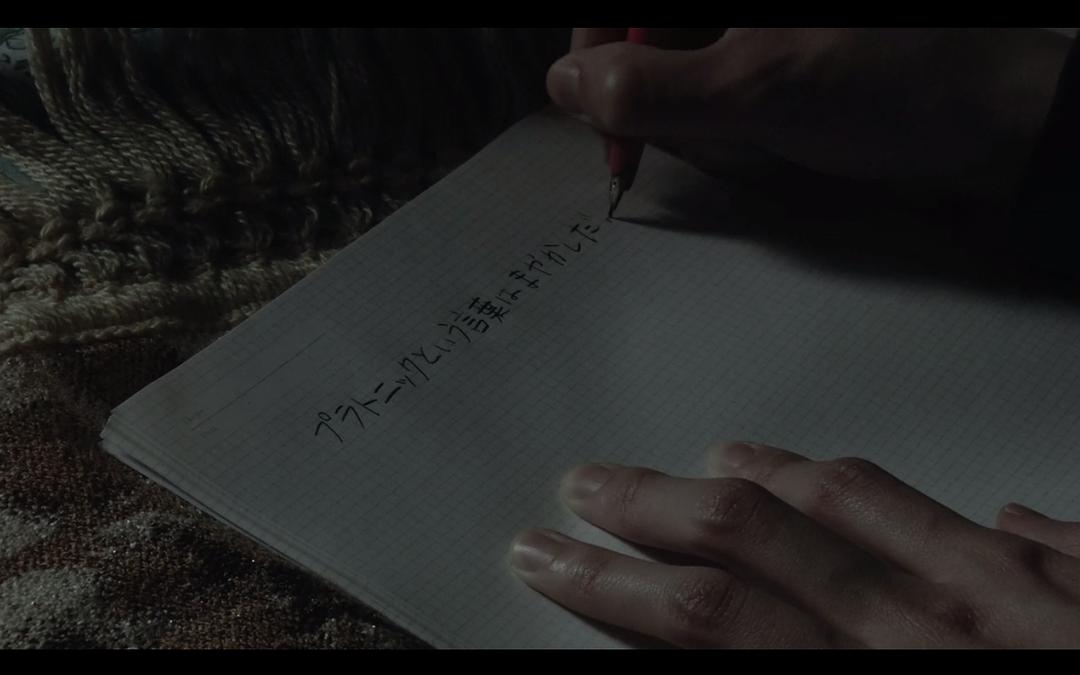 プラトニックという言葉はまやかしだ